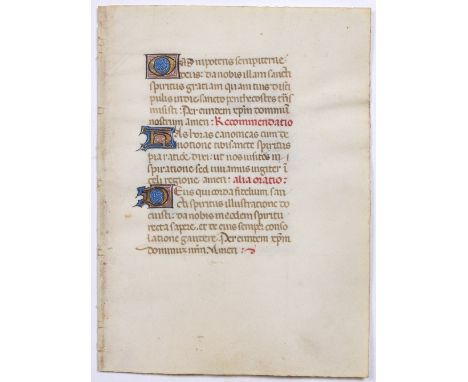 Omnipotens sempiterne
deus: da nobis illam sancti
spiritus gratiam quam tuis disci
pulis in die sancto penthecostes
misisti: Per eundem xpm dominum
nostrum amen: Recommendatio
Has horas canonicas cum de
uotione tibi sancte spiritus
pia ratione dixi: ut nos uisites in
spiratione sed uiuamus iugiter i
celi regione amen: alia oratio:
Deus qui corda fidelium san
cti spiritus illustratione do
cuisti: da nobis in eodem spiritu
recta sapere, et de eius semper conso
latione gaudere Per eundem xpm
dominum nrm Amen: